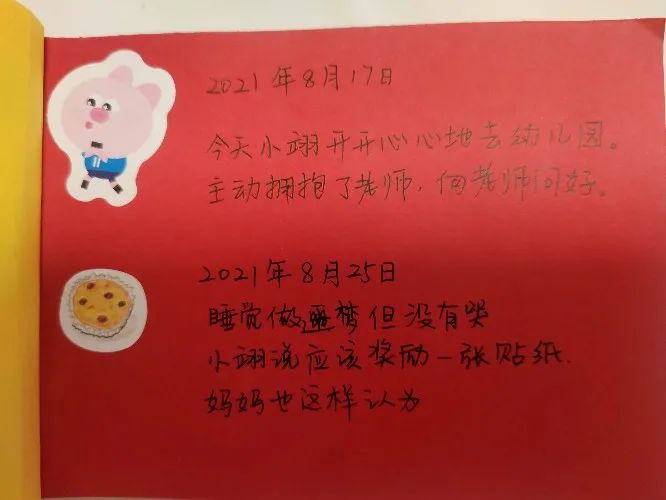 2021年8月17日
今天小翊开开心心地去幼儿园。
主动拥抱了老师,向老师问好。
2021年8月25日
睡觉做噩梦但没有哭
小翊说应该奖励一张贴纸.
妈妈也这样认为